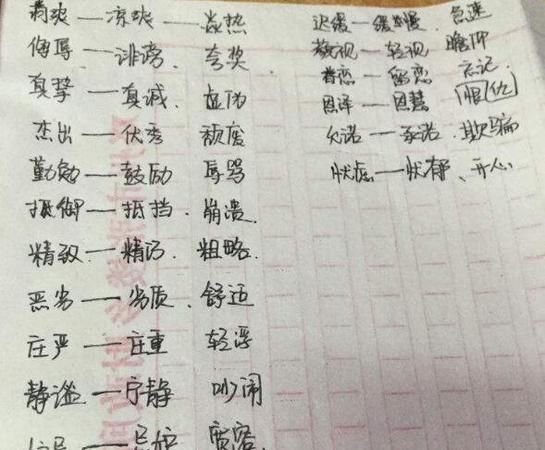 清爽——凉爽——炎热
侮辱——诽谤、夸奖
真挚——真诚、虚伪
杰出——优秀 颓废
勤勉——鼓励 辱骂
抵御——抵挡、崩溃
精致——精巧、粗略
恶劣——劣质、舒适
庄严——庄重 轻浮
静谧——宁静 吵闹
——忌妒 宽容
迟缓——缓慢、急速
藐视——轻视 瞻仰
眷恋——留恋 忘记
恩泽——恩惠
允诺——承诺、欺骗
——忧郁、开心